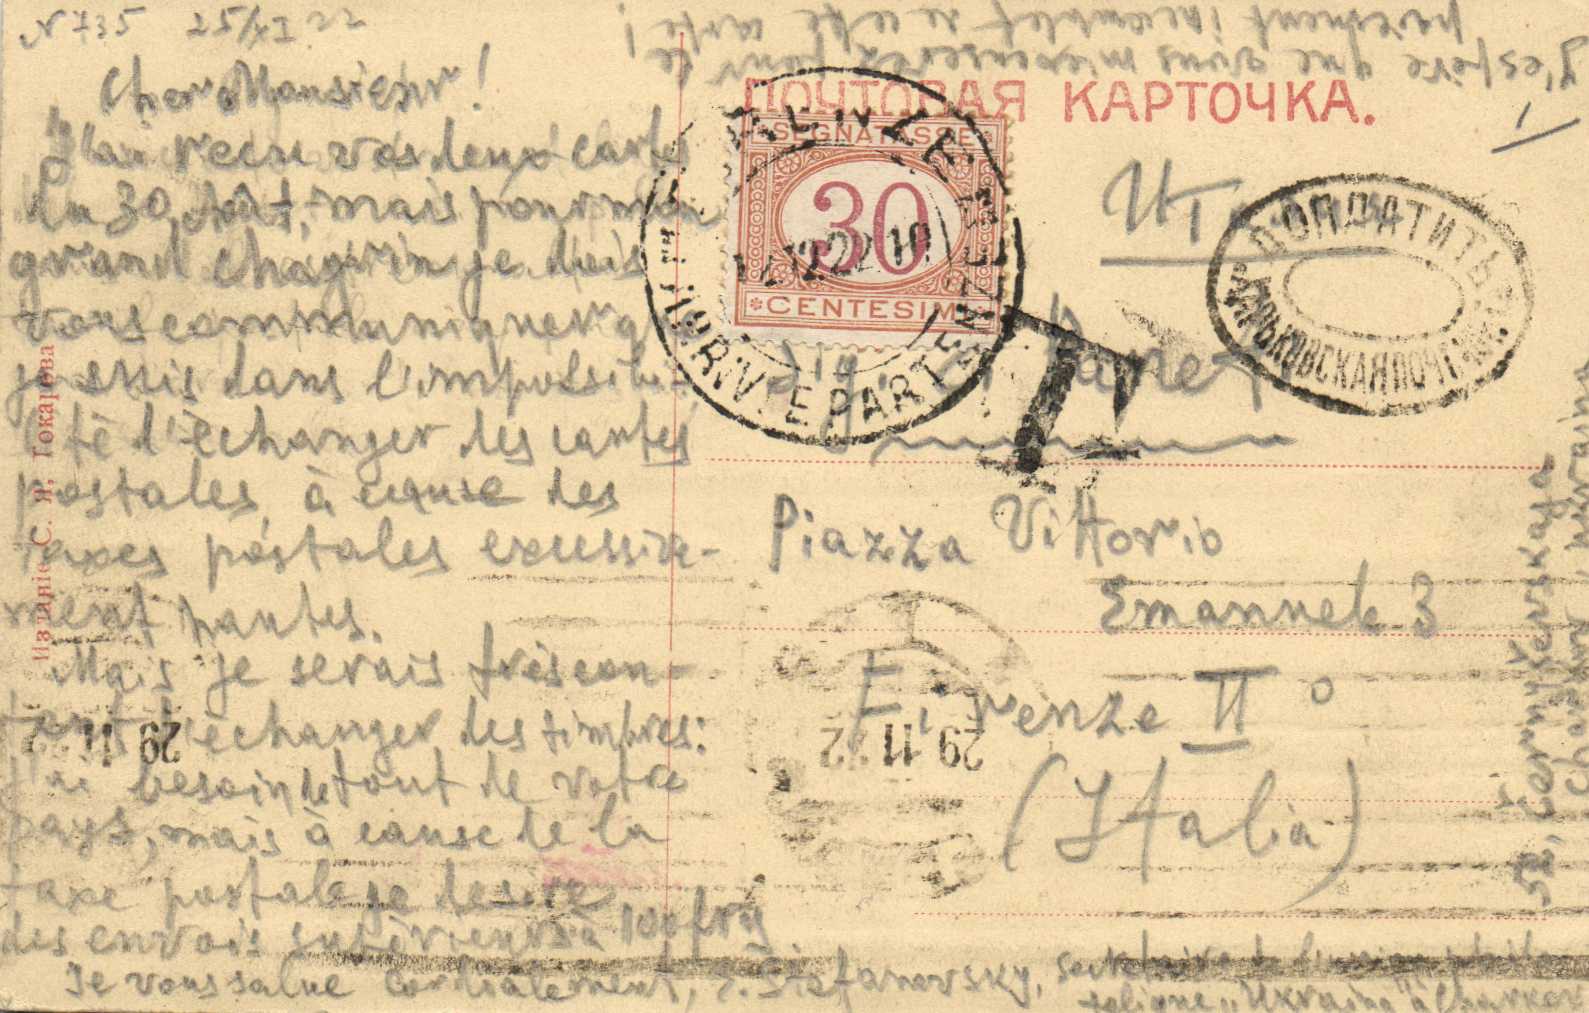 N 735 25/XI 22
Cher Monsieur!
J'ai reçu vos deux cartes
du 30 Août, mais pour mon
grand chagrin je dois
vous communiquer q
je suis dans l'impossibi-
lité d'échanger les cartes
postales à cause des
taxes postales excessive-
ment hautes.
Mais je serais très con-
tent d'échanger des timbres:
J'ai besoin de tout de votre
pays, mais à cause de la
taxe postale je desire
des envois supérieurs à 100 frs
Je vous salue cordialement, S. Stefanovsky, secretaire de l'union phila-
telique "Ukraine" à Charkov
J'espère que vous m'excuserez pour le
paiement incomplet de cette carte!
52, Černyševskaja
Charkov, Ukraine
Изданіе С. И. Токарова
ПОЧТОВАЯ КАРТОЧКА.
SEGNATASSE
30
CENTESIMI
FIRENZE
ARRIVI E PARTENZE
12.22 10
ДОПЛАТИТЬ
ХАРЬКОВСКАЯ ПОЧТ
T
Piazza Vittorio
Emanuele 3
Firenze II°
(Italia)
29 11 22
29 11 2